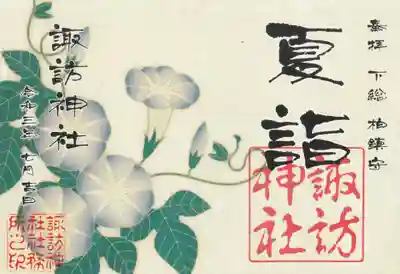 奉拝 下総 柏鎮守
夏詣
諏訪
神社
諏訪神社
令和三年 七月 吉日
諏訪神
社社務
所之印